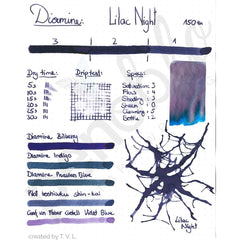 Diamine: Lilac Night 150th
3 2 1
Dry time: Driptest: Specs:
5s
10s
15s
20s
25s
30s
Saturation: 5
Flow: 4
Shading: 3
Sheen: 0
Cleaning: 5
Bottle: 2
Diamine Bilberry
Diamine Indigo
Diamine Prussian Blue
Pilot Iroshizuku shin-kai
Graf von Faber Castell Violet Blue
Lilac
Night
created by T.V.L.